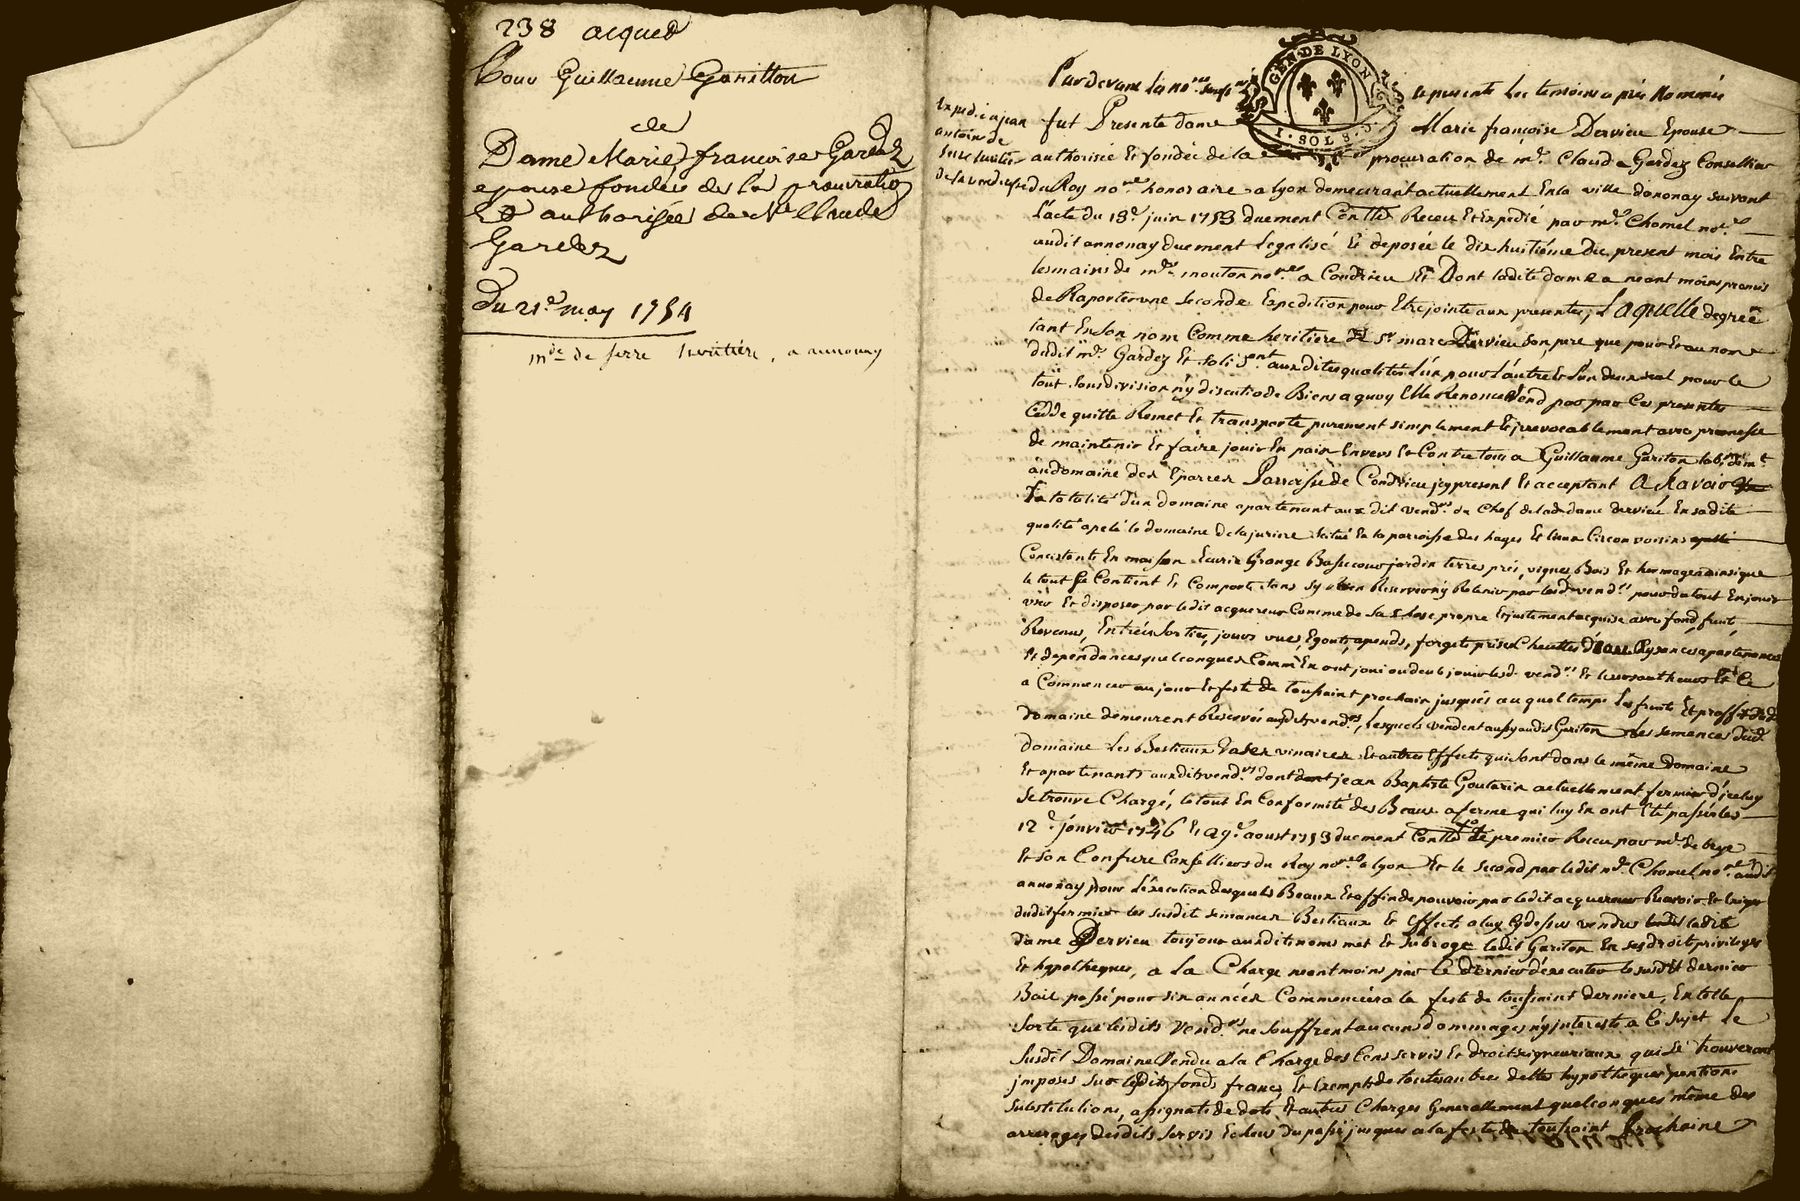 238 acquet
Pour Guillaume Gariton
de
Dame Marie francoise Gardez
epouse fondée de la procuration
Et authorisée de Me Claude
Gardez
Du 21e may 1754
mde de serre heritiere, a annonay
GEN. DE LYON
1. SOL 8. D.
Pardevant les nores soussignés et presents les temoins après Nommés
fut Presente dame Marie françoise Dervieu Epouse
Expedié a jean
antoine de
serre heritier
de la vendeuse
authorisée Et fondée de la procuration de mr. Claude Gardez Conseiller
du Roy nore honoraire a lyon demeurant actuellement En la ville danonay suivant
L'acte du 18e juin 1753 duement Contllé Receu Et Expedié par mr. Chomel nore
audit annonay duement Legalisé Et deposée le dix huitième Du present mois Entre
les mains de me mouton nore a Condrieu Et Dont ladite dame a neant moins promis
de Raporter une seconde Expedition pour Etre jointe aux presentes, Laquelle degrée
tant En son nom Comme heritiere de sr marc Dervieu son pere que pour Et au nom
dudit mr. Gardez Et solidnt aux dites qualités L'un pour L'autre Et L'un deux seul pour le
tout sans division ny discution de Biens a quoy Elle Renonce Vend par ces presentes
Cedde quitte Remet Et transporte purement simplement Et irrevocablement avec promesse
de maintenir Et faire jouir En paix Envers Et Contre tous a Guillaume Gariton labr demt
au domaine des Eparres Parroisse de Condrieu icy present Et acceptant A Savoir
La totalité d'un domaine apartenant aux dit vendrs du Chef de lad. dame dervieu En sadite
qualité apelé le domaine de la juriere situé En la parroisse des hayes Et lieux Circonvoisins
Concistants En maison Ecurie Grange Bassecour jardin terres prés, vignes Bois Et hermages ainsi que
le tout se Contient Et Comporte sans sy rien Reserver ny Retenir par lesd. vendrs pour du tout En jouir
user Et disposer par ledit acquereur Comme de sa Chose propre Et justement acquise avec fond, fruit
Revenus, Entrées sorties, jours vues, Egouts, apends, forgets prises Cheuttes d'eau Aysances apartenances
Et dependances quelconques Comm'En ont joui ou deub jouir lesd. vendrs Et leurs autheurs Et Ce
a Commencer au jour Et feste de toussaint prochain jusques au quel temps Les fruits Et proffit dud.
domaine demeurent Reservés auxdits vendrs, Lesquels vendent aussy audit Gariton Les semences dud.
domaine Les Bestiaux Vases vinaires Et autres Effects qui sont dans le même Domaine
Et apartenants auxdits vendrs dont jean Baptiste Goutarin actuellement fermier d'iceluy
se trouve Chargé, le tout En Conformité des Beaux a ferme qui luy En ont Eté passés les
12e janvier 1746 Et 29e aoust 1753 duement Contllé Le premier Receu par mr. de brye
Et son Confrere Conseillers du Roy nores a lyon Et le second par ledit mr. Chomel nore audit
annonay pour L'execution desquels Beaux Et affin de pouvoir par ledit acquereur Ravoir Et Exiger
dudit fermier les susdits semances Bestiaux Et Effects a luy Cy dessus vendus ladite
dame Dervieu toujour auxdits noms met Et subroge ledit Gariton En ses droits privileges
Et hypotheques, a La Charge neant moins par Ce dernier d'executer le susdit dernier
Bail passé pour six années Commencées a la feste de toussaint derniere, En telle
sorte que lesdits Vendrs ne souffrent aucuns dommages ny interests a Ce sujet Le
susdit Domaine Vendu a la Charge des Cens servis Et droit seigneuriaux qui se trouveront
imposés sur lesdits fonds francs Et Exempts de toutes autres dettes hypotheques pentions
substitutions, assignats de dots Et autres Charges Generallement quelconques même des
arrerages desdits servis Echeus du passé jusques a la feste de toussaint Prochaine